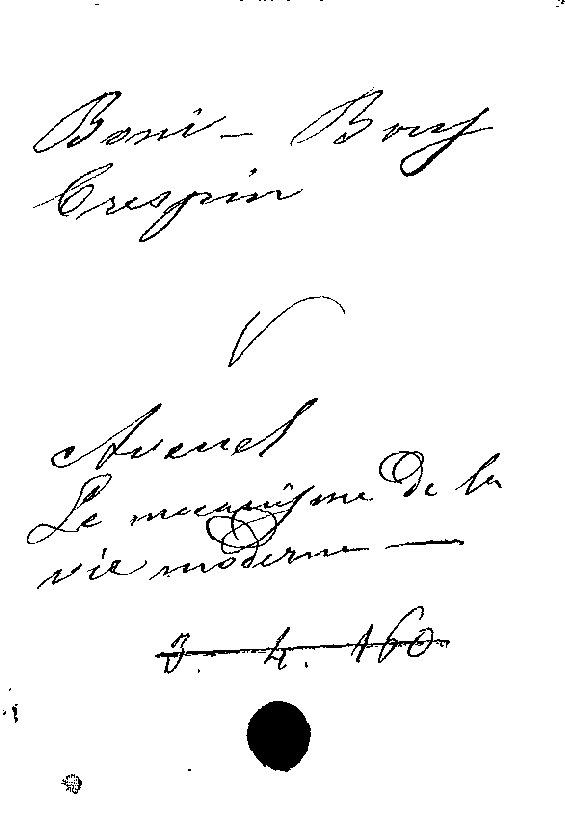 Boni - Bouf
Crespin
V
Avenel
Le mecanisme de la
vie moderne —
3. 4. 160